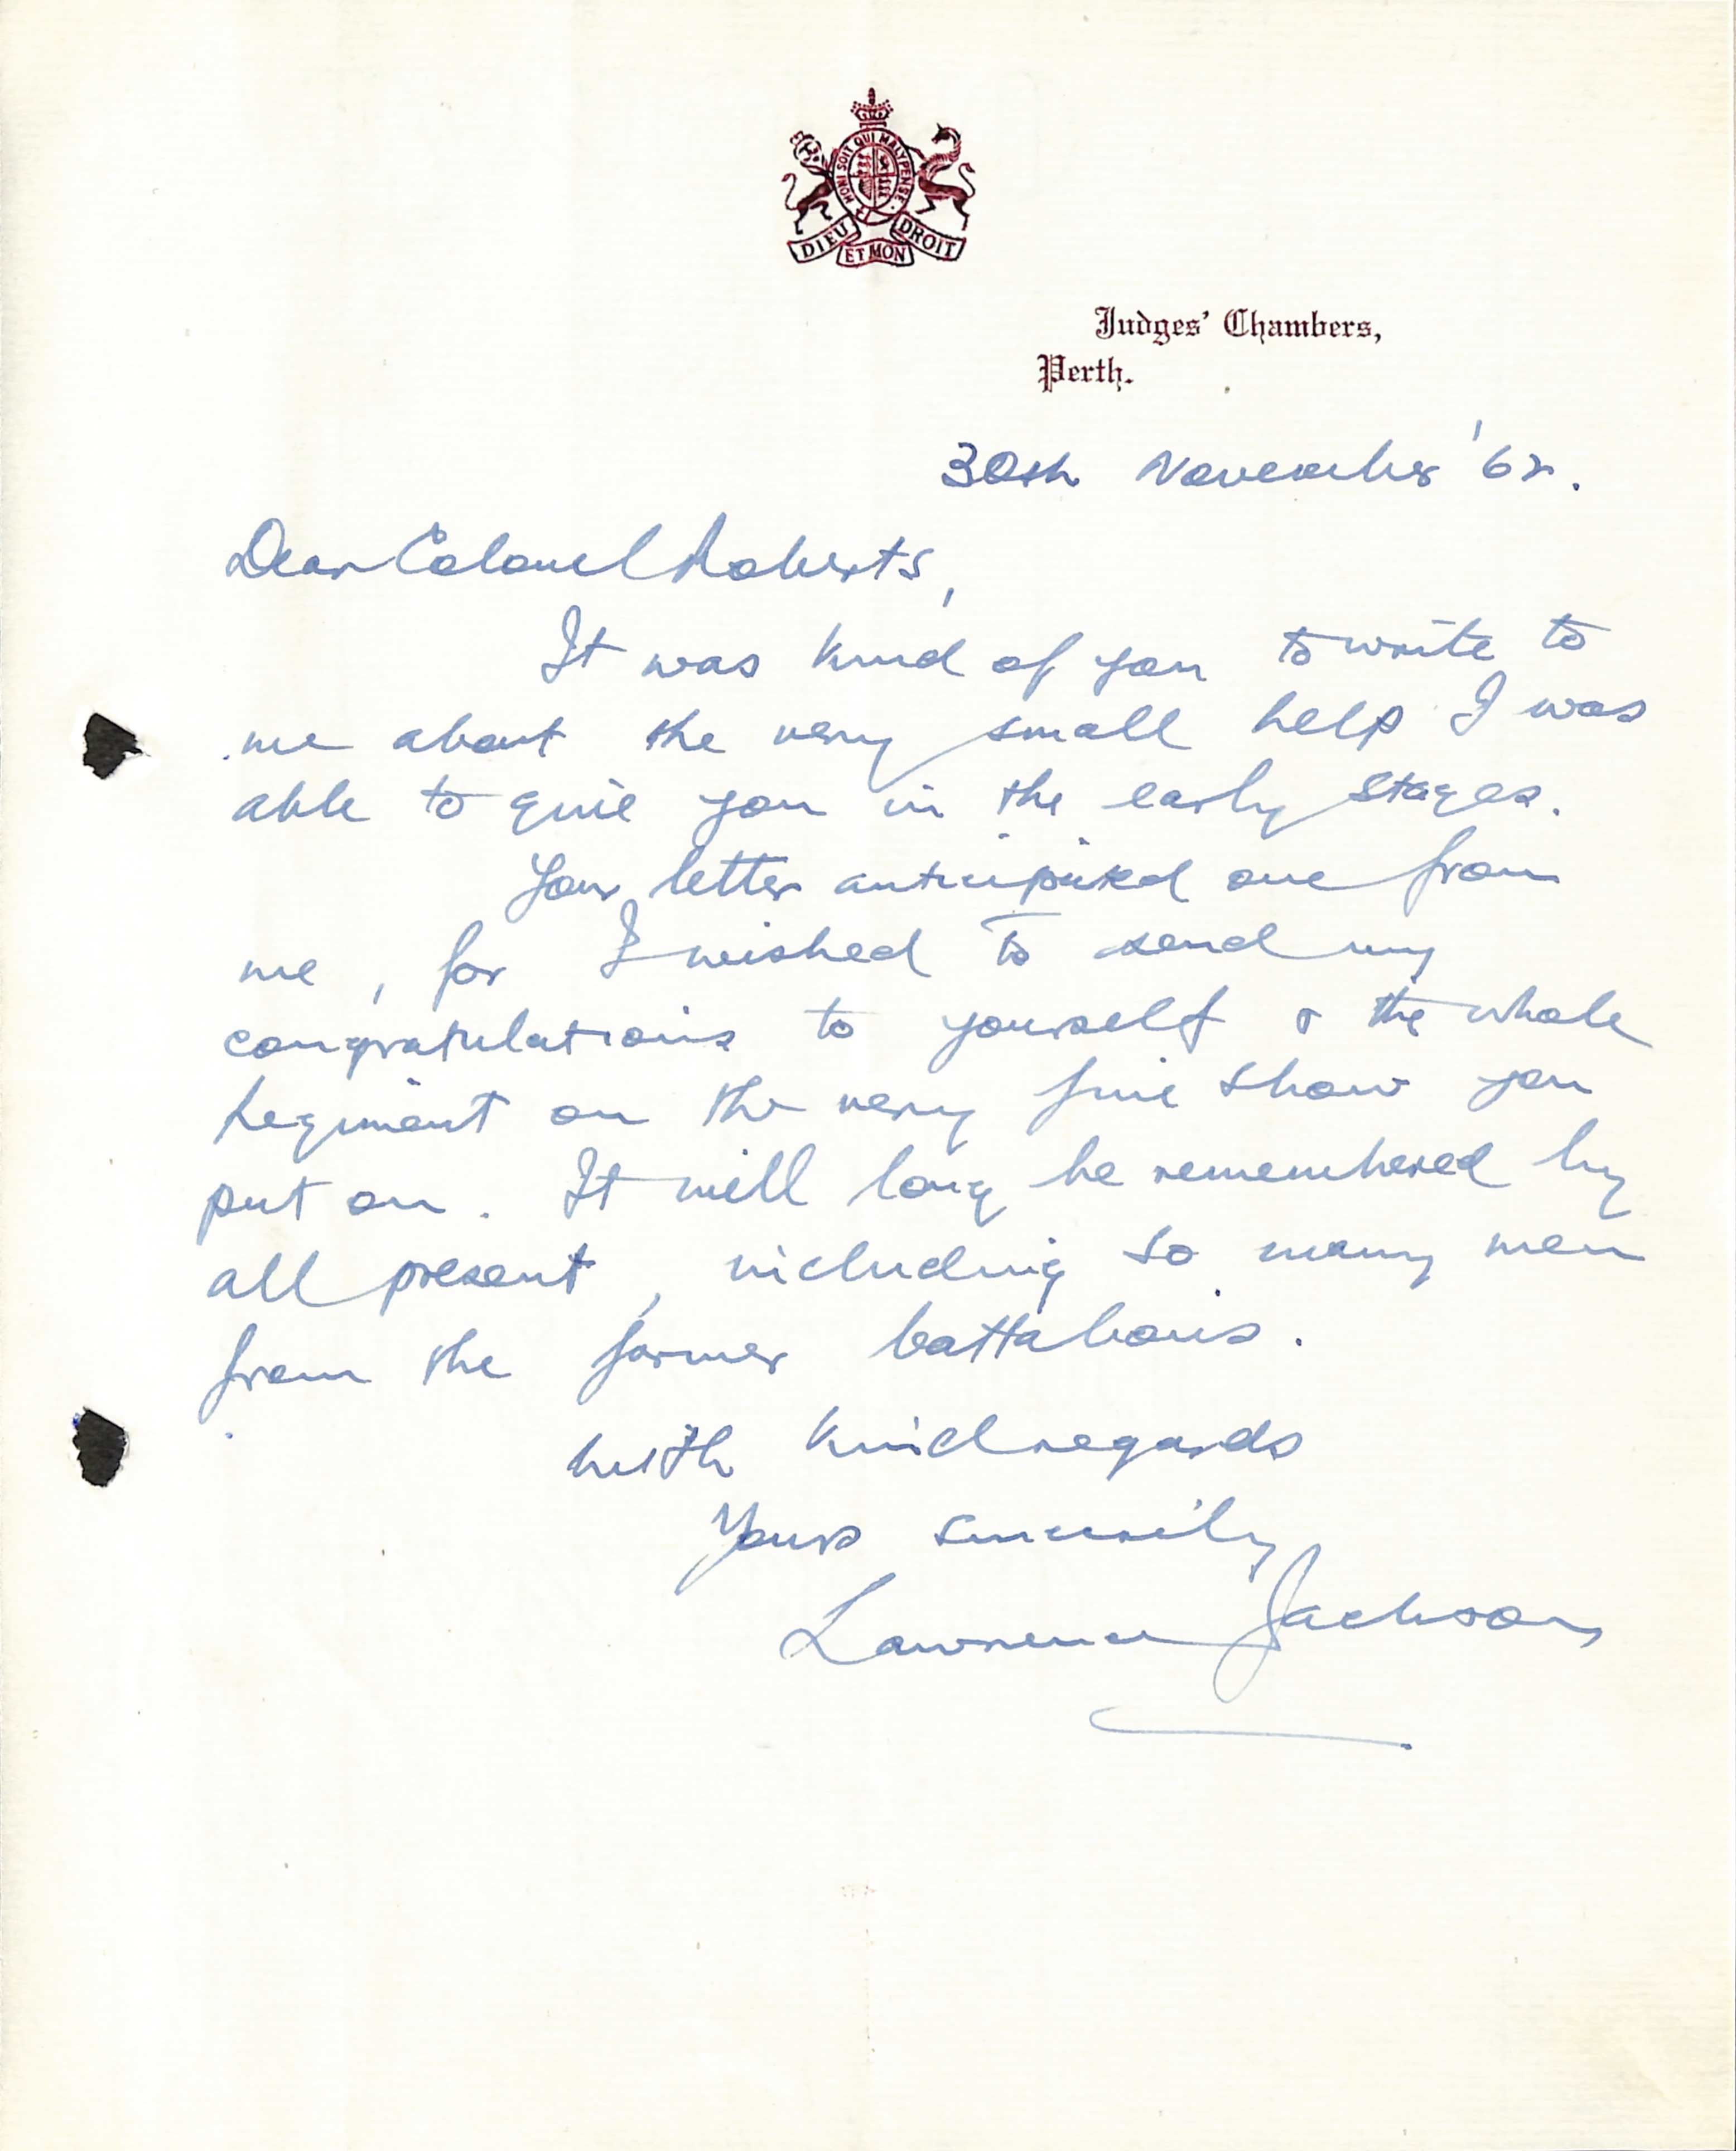 HONI SOIT QUI MAL Y PENSE
DIEU ET MON DROIT
Judges' Chambers,
Perth.
30th November '62.
Dear Colonel Roberts,
It was kind of you to write to
me about the very small help I was
able to give you in the early stages.
Your letter anticipated one from
me, for I wished to send my
congratulations to yourself & the whole
Regiment on the very fine show you
put on. It will long be remembered by
all present, including so many men
from the former battalions.
With kind regards
Yours sincerely
Lawrence Jackson